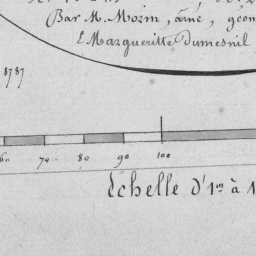 Par M. Morin, ainé, géom
L Marguerite Dumesnil
1787
60 70 80 90 100
Echelle d'1re à 1